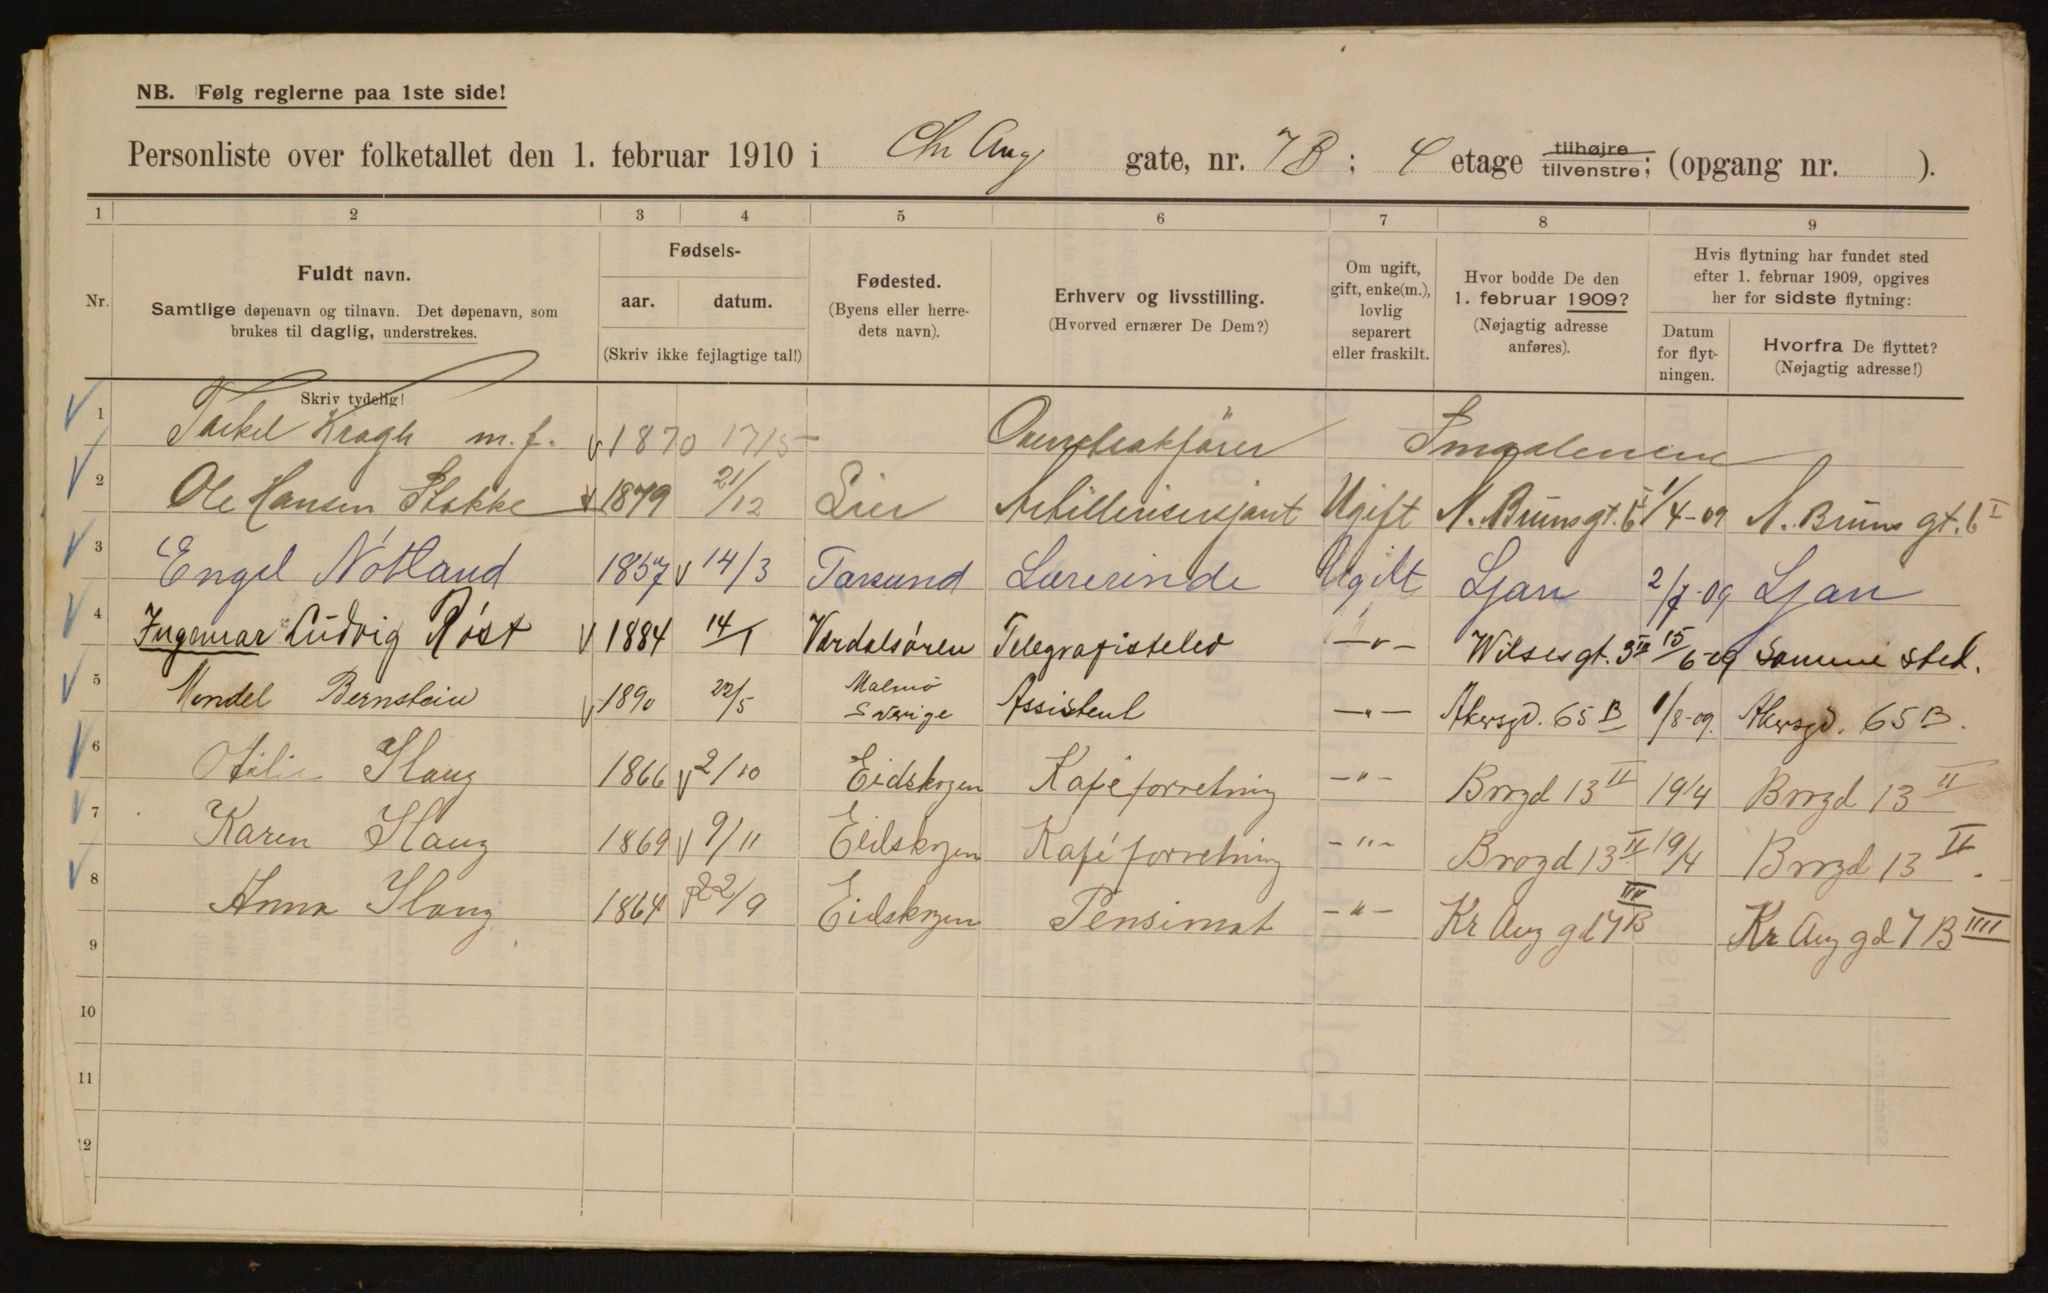 NB. Følg reglerne paa 1ste side!
Personliste over folketallet den 1. februar 1910 i Chr Aug gate, nr. 7B : 4 etage tilhøjre tilvenstre; (opgang nr. ).
1 2 3 4 5 6 7 8 9
Nr.
Fuldt navn.
Samtlige døpenavn og tilnavn. Det døpenavn, som
brukes til daglig, understrekes.
Fødsels-
aar. datum.
(Skriv ikke fejlagtige tal!)
Fødested.
(Byens eller herre-
dets navn).
Erhverv og livsstilling.
(Hvorved ernærer De Dem?)
Om ugift,
gift, enke(m.),
lovlig
separert
eller fraskilt.
Hvor bodde De den
1. februar 1909?
(Nøjagtig adresse
anføres).
Hvis flytning har fundet sted
efter 1. februar 1909, opgives
her for sidste flytning:
Datum
for flyt-
ningen.
Hvorfra De flyttet?
(Nøjagtig adresse!)
Skriv tydelig!
1 Torkel Kragh m.f. 1870 17/5 Smaalenene
2 Ole Hansen Stokke 1879 21/12 Lier Artillerisersjant Ugift N. Brunsgt. 6 I 1/4-09 N. Bruns gt. 6 I
3 Engel Nøtland 1857 14/3 Lærerinde Ugift Ljan 2/7-09 Ljan
4 Ingemar Ludvig Røst 1884 14/1 Værdalsøren Telegrafistelev —„— Wilsesgt. 3 15/6-09 Samme sted.
5 Mendel Bernstein 1890 22/5 Malmø Sverige Assistent —„— Akersgd. 65 B 1/8-09. Akersgd. 65 B.
6 Otilie Haug 1866 2/10 Eidskogen Kaféforretning —„— Brogd 13 II 19/4 Brogd 13 II
7 Karen Haug 1869 9/11 Eidskogen Kaféforretning —„— Brogd 13 II 19/4 Brogd 13 II.
8 Anna Haug 1864 22/9 Eidskogen Pensionat —„— Kr Aug gd 7 B III Kr Aug gd 7 B IIII
9
10
11
12